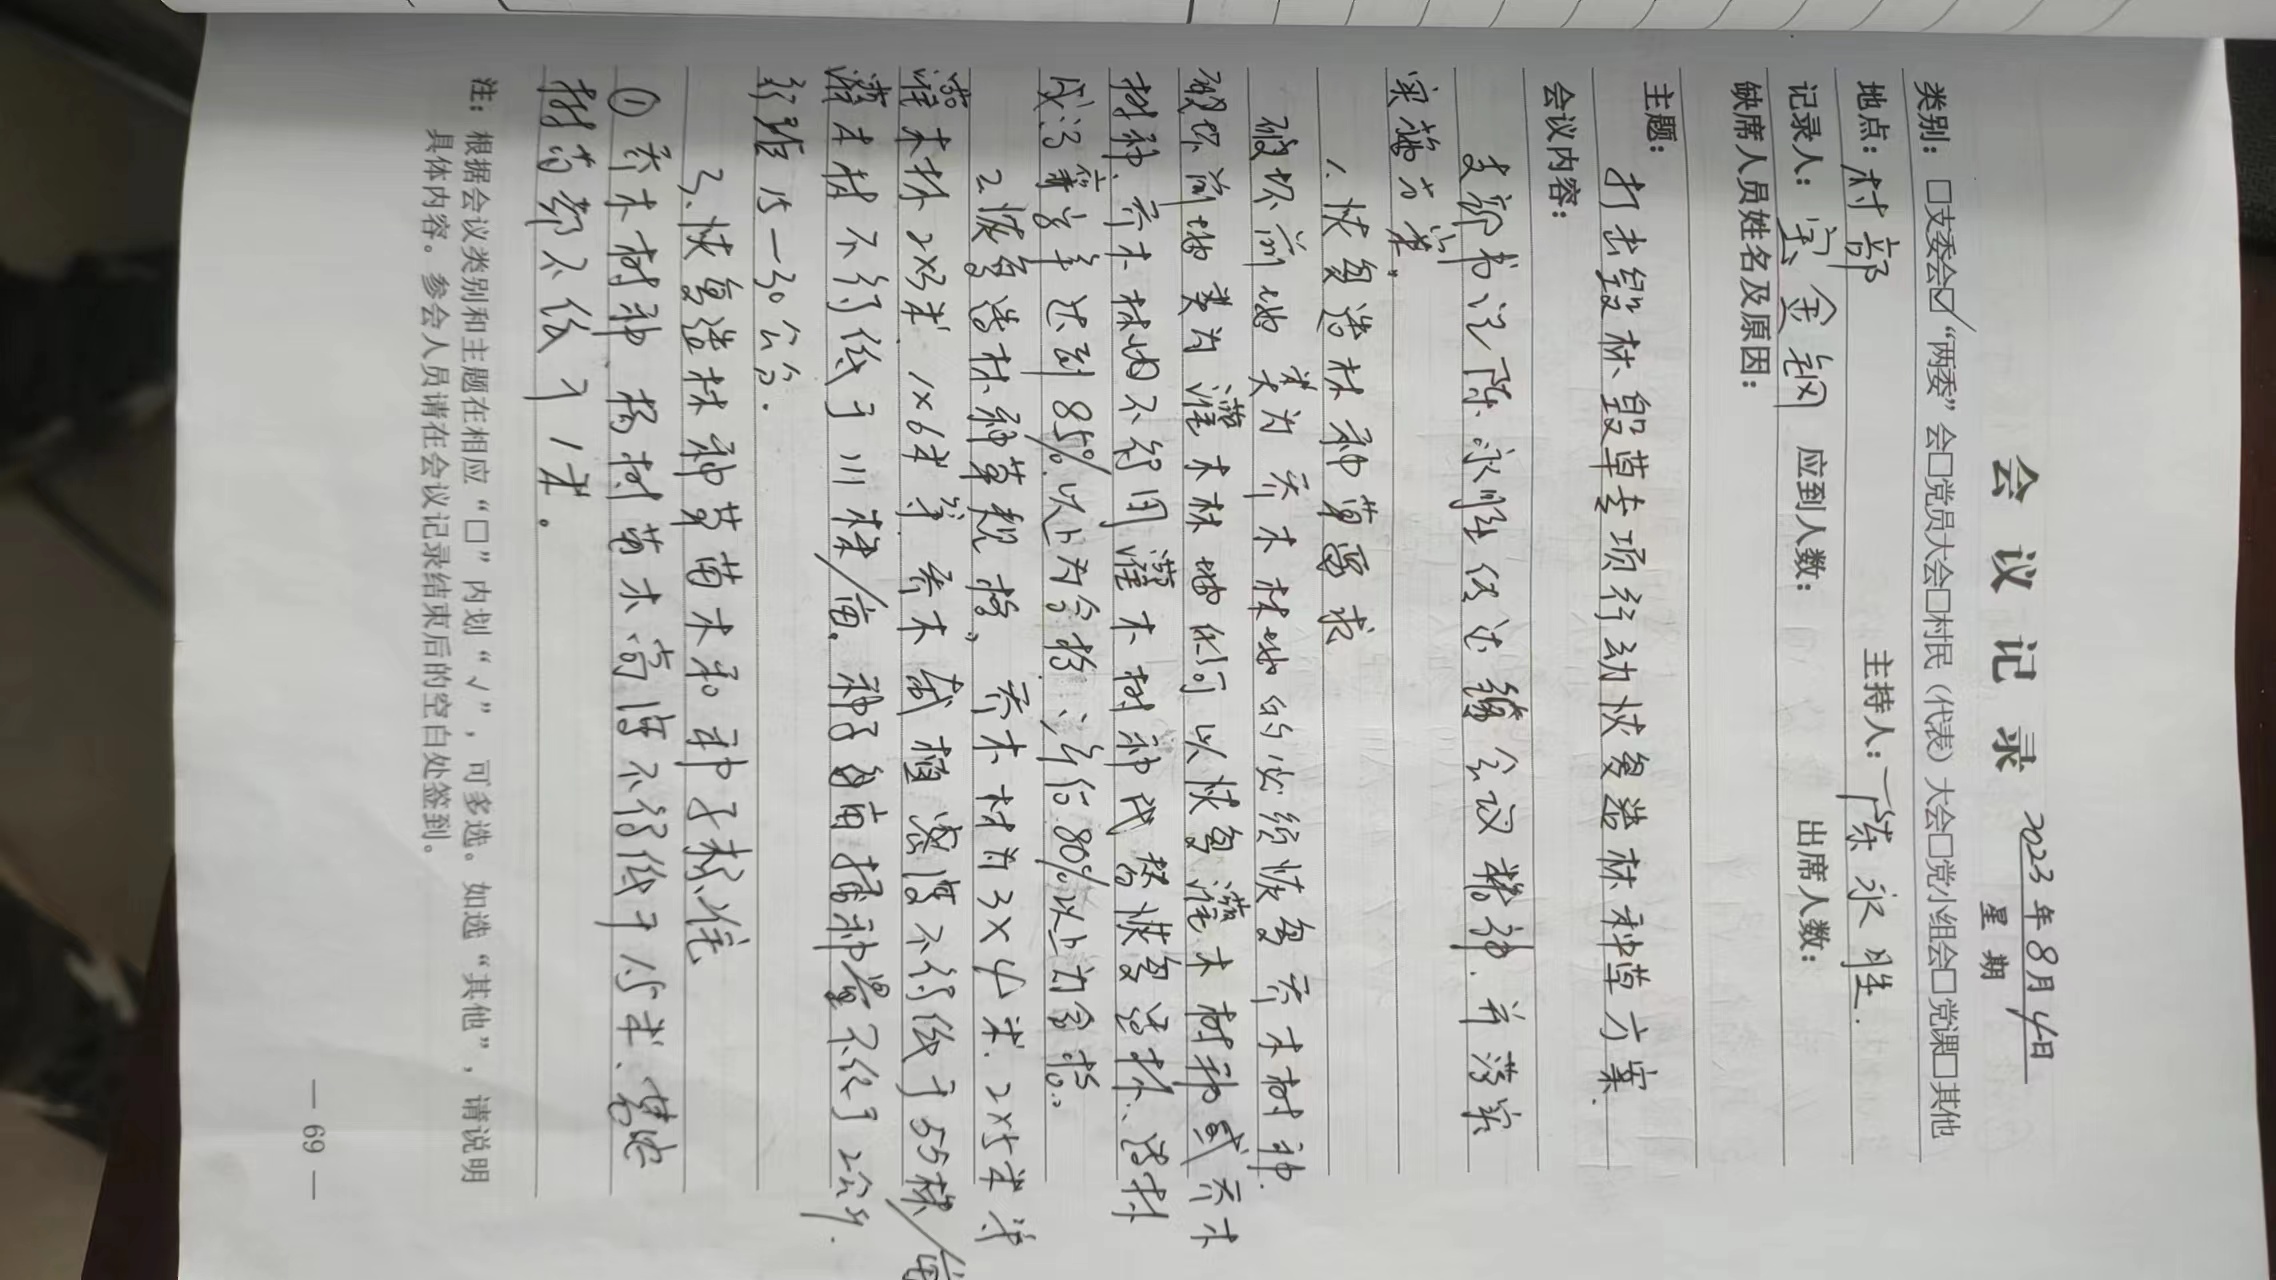 会 议 记 录
2023年8月4日
星 期
类别：□支委会☑“两委”会□党员大会□村民（代表）大会□党小组会□党课□其他
地点：村部 主持人：陈永胜.
记录人：宝金钢 应到人数： 出席人数：
缺席人员姓名及原因：
主题：
打击毁林毁草专项行动恢复造林种草方案.
会议内容：
支部书记陈永胜传达 会议精神.并落实
实施方案。
1.恢复造林种草要求
破坏前地类为乔木林地的必须恢复乔木树种.
破坏前地类为灌木林地的可以恢复灌木树种或乔木
树种.乔木林地不得用灌木树种代替恢复造林、造林
成活率达到85%以上为合格、 80%以上为合格。
2.恢复造林种草规格。乔木林为3×4米.2×5米等
灌木林2×3米.1×6米等.乔木栽植密度不得低于55株/亩
灌木林不得低于111株/亩.种子直播播种量不低于2公斤.
行距15—30公分.
3、恢复造林种草苗木和种子标准
①乔木树种、杨树苗木高度不得低于1.5米、
树苗都不低于1米。
注：根据会议类别和主题在相应“□”内划“√”，可多选。如选“其他”，请说明
具体内容。参会人员请在会议记录结束后的空白处签到。
— 69 —